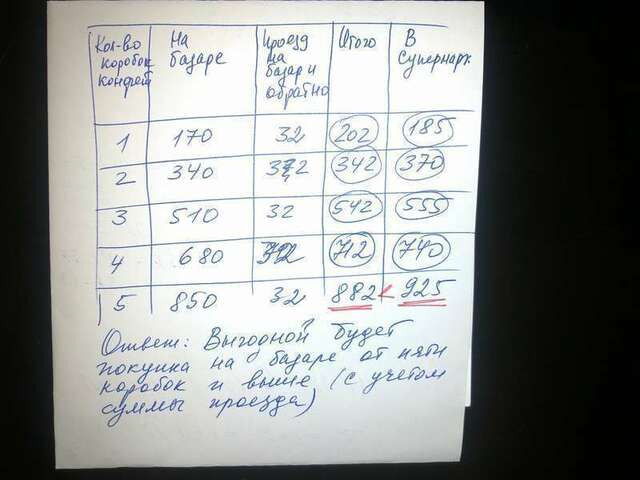 Кол-во коробок конфет На базаре Проезд на базар и обратно Итого В Супермарк.
1 170 32 202 185
2 340 32 342 370
3 510 32 542 555
4 680 32 712 740
5 850 32 882 < 925
Ответ: Выгодной будет
покупка на базаре от пяти
коробок и выше (с учетом
суммы проезда)